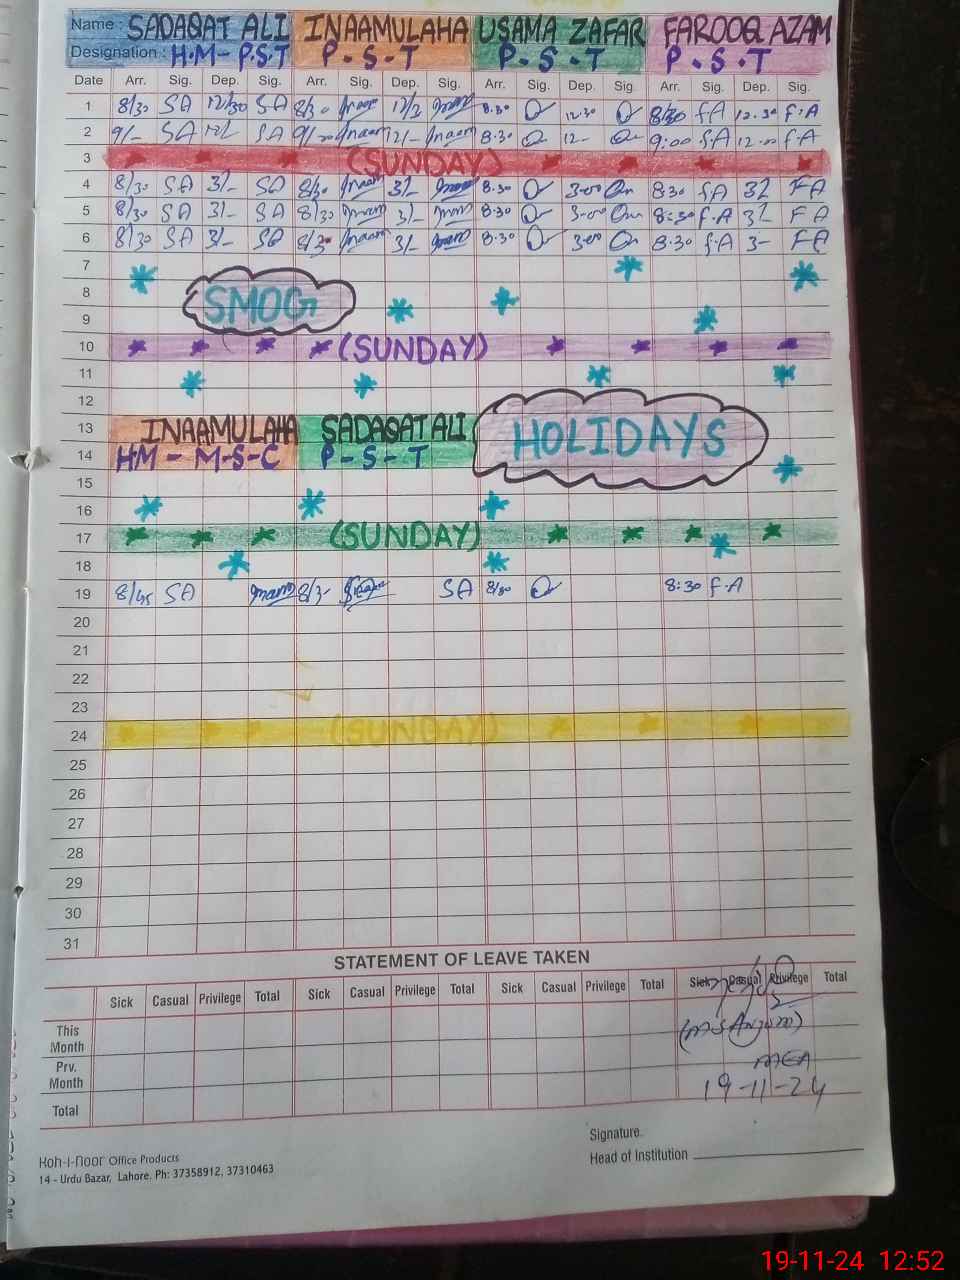 Name : SADAQAT ALI INAAMULAHA USAMA ZAFAR FAROOQ AZAM
Designation : H.M- P.S.T P.S.T P.S.T P.S.T
Date Arr. Sig. Dep. Sig. Arr. Sig. Dep. Sig. Arr. Sig. Dep. Sig. Arr. Sig. Dep. Sig.
1 8/30 SA 12/30 SA 8/30 Inaam 12/3 Inaam 8.30 12.30 8/30 f.A 12.30 F.A
2 9/- SA 12/ SA 9/-00 Inaam 12/- Inaam 8.30 12- 9:00 f.A 12.00 f.A
3 (SUNDAY)
4 8/30 SA 3/- SA 8/30 Inaam 3/- Inaam 8.30 3-00 8:30 f.A 3/ FA
5 8/30 SA 3/- SA 8/30 Inaam 3/- Inaam 8.30 3-00 8:30 f.A 3/ FA
6 8/30 SA 3/- SA 8/30 Inaam 3/- Inaam 8.30 3-00 8.30 f.A 3- FA
7
8 SMOG
9
10 (SUNDAY)
11
12
13 INAAMULAHA SADAQAT ALI HOLIDAYS
14 HM - M-S-C P-S-T
15
16
17 (SUNDAY)
18
19 8/45 SA Inaam 8/3- SA 8/30 8:30 f.A
20
21
22
23
24 (SUNDAY)
25
26
27
28
29
30
31
STATEMENT OF LEAVE TAKEN
Sick Casual Privilege Total Sick Casual Privilege Total Sick Casual Privilege Total Sick Casual Privilege Total
This Month
Prv. Month
Total
(M S Anjum)
MEA
19-11-24
Signature.
Head of Institution
Koh-I-Noor Office Products
14 - Urdu Bazar, Lahore. Ph: 37358912, 37310463
19-11-24 12:52